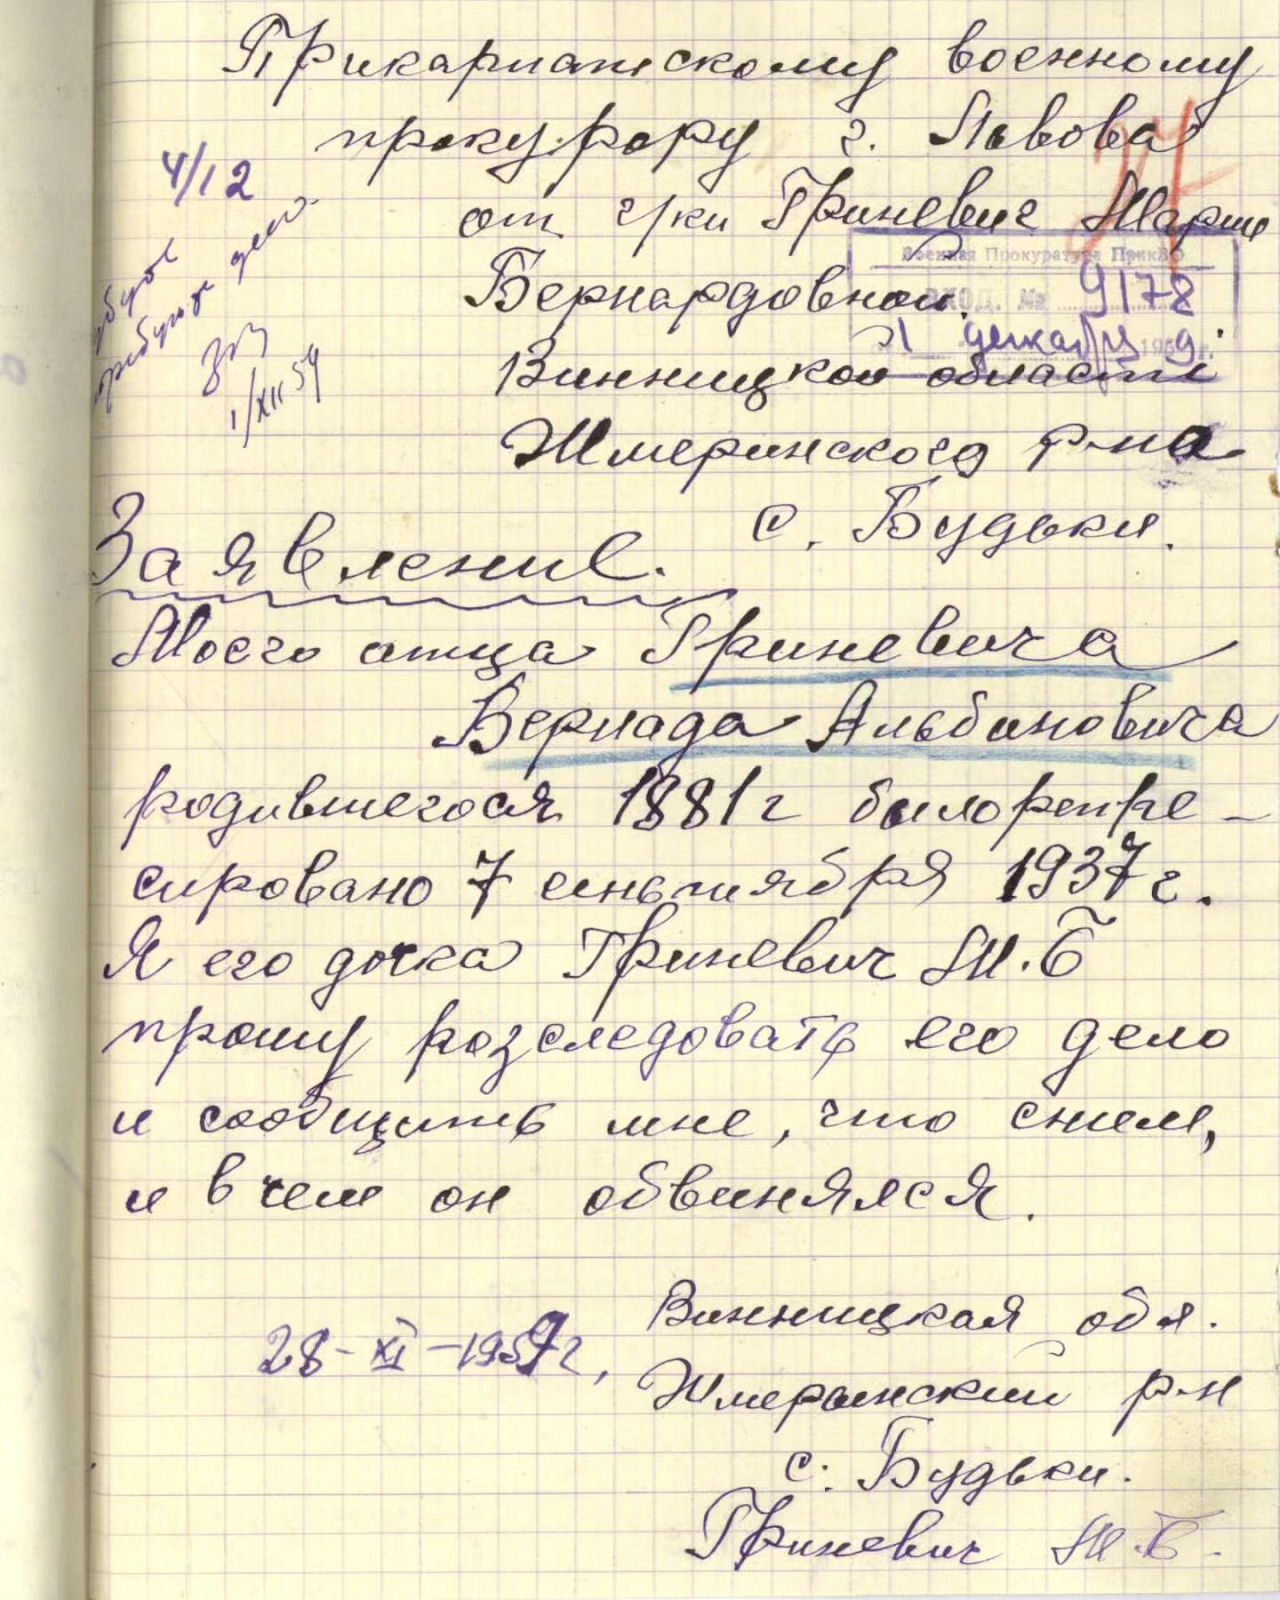 Прикарпатскому военному
прокурору г. Львова
4/12
от г/ки Гриневич Марии
Военная Прокуратура ПрикВО
Бернардовной
ВХОД. № 9178
1 декабря 1959 г.
Винницкой области
1/XII 59
Жмеринского р-на
с. Будьки.
Заявление.
Моего отца Гриневича
Бернада Альбиновича
родившегося 1881 г было репре-
сировано 7 сеньтября 1937 г.
Я его дочка Гриневич М.Б
прошу розследовать его дело
и сообщить мне, что снем,
и в чем он обвинялся.
Винницкая обл.
28-XI-1959 г,
Жмеринский р-н
с. Будьки.
Гриневич М.Б.